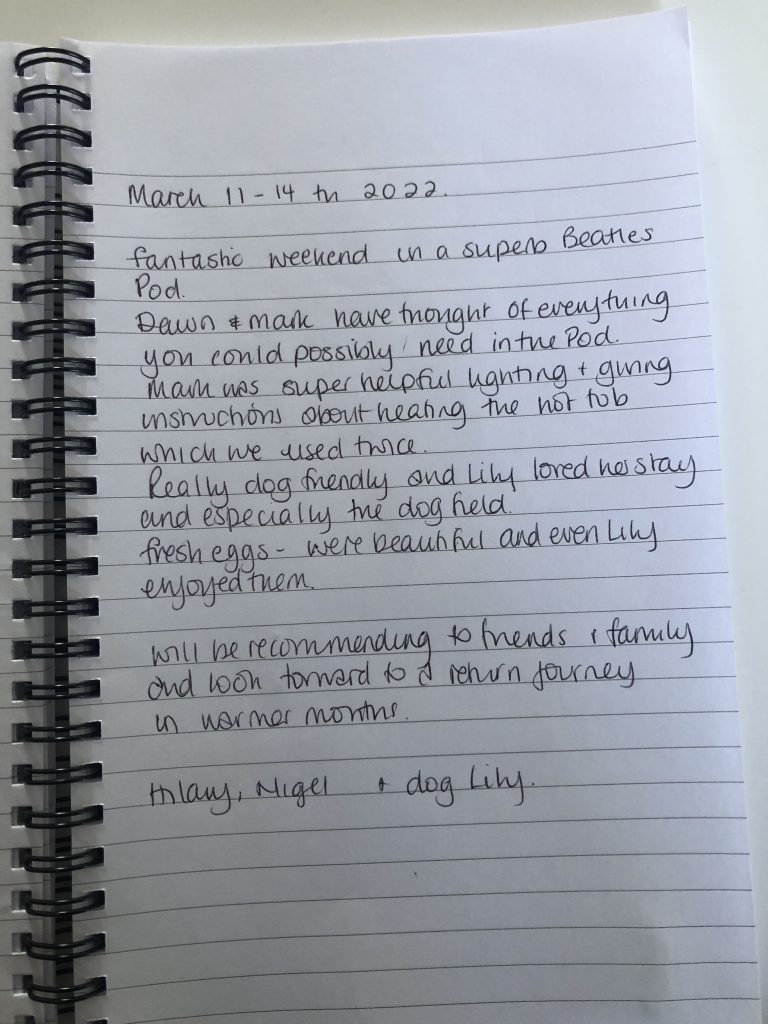 March 11-14 th 2022.
fantastic weekend in a superb Beatles
Pod.
Dawn & mark have thought of everything
you could possibly need in the Pod.
Mark was super helpful lighting + giving
instructions about heating the hot tub
which we used twice.
Really dog friendly and Lily loved her stay
and especially the dog field.
fresh eggs - were beautiful and even Lily
enjoyed them.
will be recommending to friends + family
and look forward to a return journey
in warmer months.
Hilary, Nigel + dog Lily.